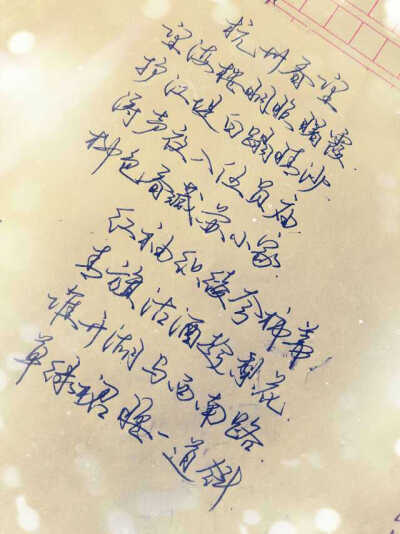 杭州春望
望海楼明照曙霞
护江堤白踏晴沙
涛声夜入伍员庙
柳色春藏苏小家
红袖织绫夸柿蒂
青旗沽酒趁梨花
谁开湖寺西南路
草绿裙腰一道斜